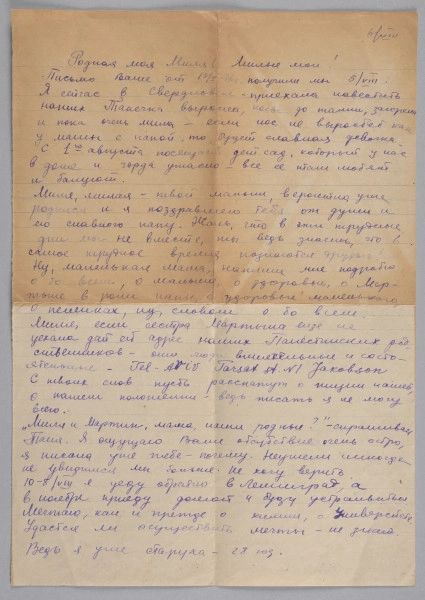 6/VIII
Родная моя Миля! Милые мои!
Письмо Ваше от получили мы 5/VIII.
Я сейчас в Свердловске – приехала навестить
наших. Танечка выросла, до талии,
и пока очень мила – если нос не вырастет как
у мамы с папой, то будет славная девочка.
С 1го августа посещает детсад, который у нас
в доме и горда ужасно – все её там любят
и балуют.
Миля, милая – твой малыш, вероятно, уже
родился и я поздравляю тебя от души и
его славного папу. Жаль, что в эти трудные
дни мы не вместе, ты ведь знаешь, что в
самое трудное время познаются друзья.
Ну, маленькая мама, напиши мне подробно
о во всем, о малыше, о здоровье, о Мар-
тыне в роли папы, о здоровье маленького,
о пеленках, ну, словом о во всем.
Миля, если сестра Мартына еще не
уехала дай ей адрес наших Палестинских род-
ственников – они люди влиятельные и состо-
ятельные – Tel-Aviv Jakobson
С твоих слов пусть расскажут о жизни нашей,
о нашем положении – ведь писать я не могу
всего.
„Миля и Мартын, мама, наши родные?" – спрашивает
Таня. Я ощущаю Ваше отсутствие очень остро,
я писала уже тебе – почему. Неужели никогда
не увидимся мы больше. Не могу верить.
10-8/VIII я уеду обратно в Ленинград, а
в ноябре приеду домой и буду устраиваться
Мечтаю, как и прежде о химии, о Университете
Удастся ли осуществить мечты – не знаю.
Ведь я уже старуха – 28 год.